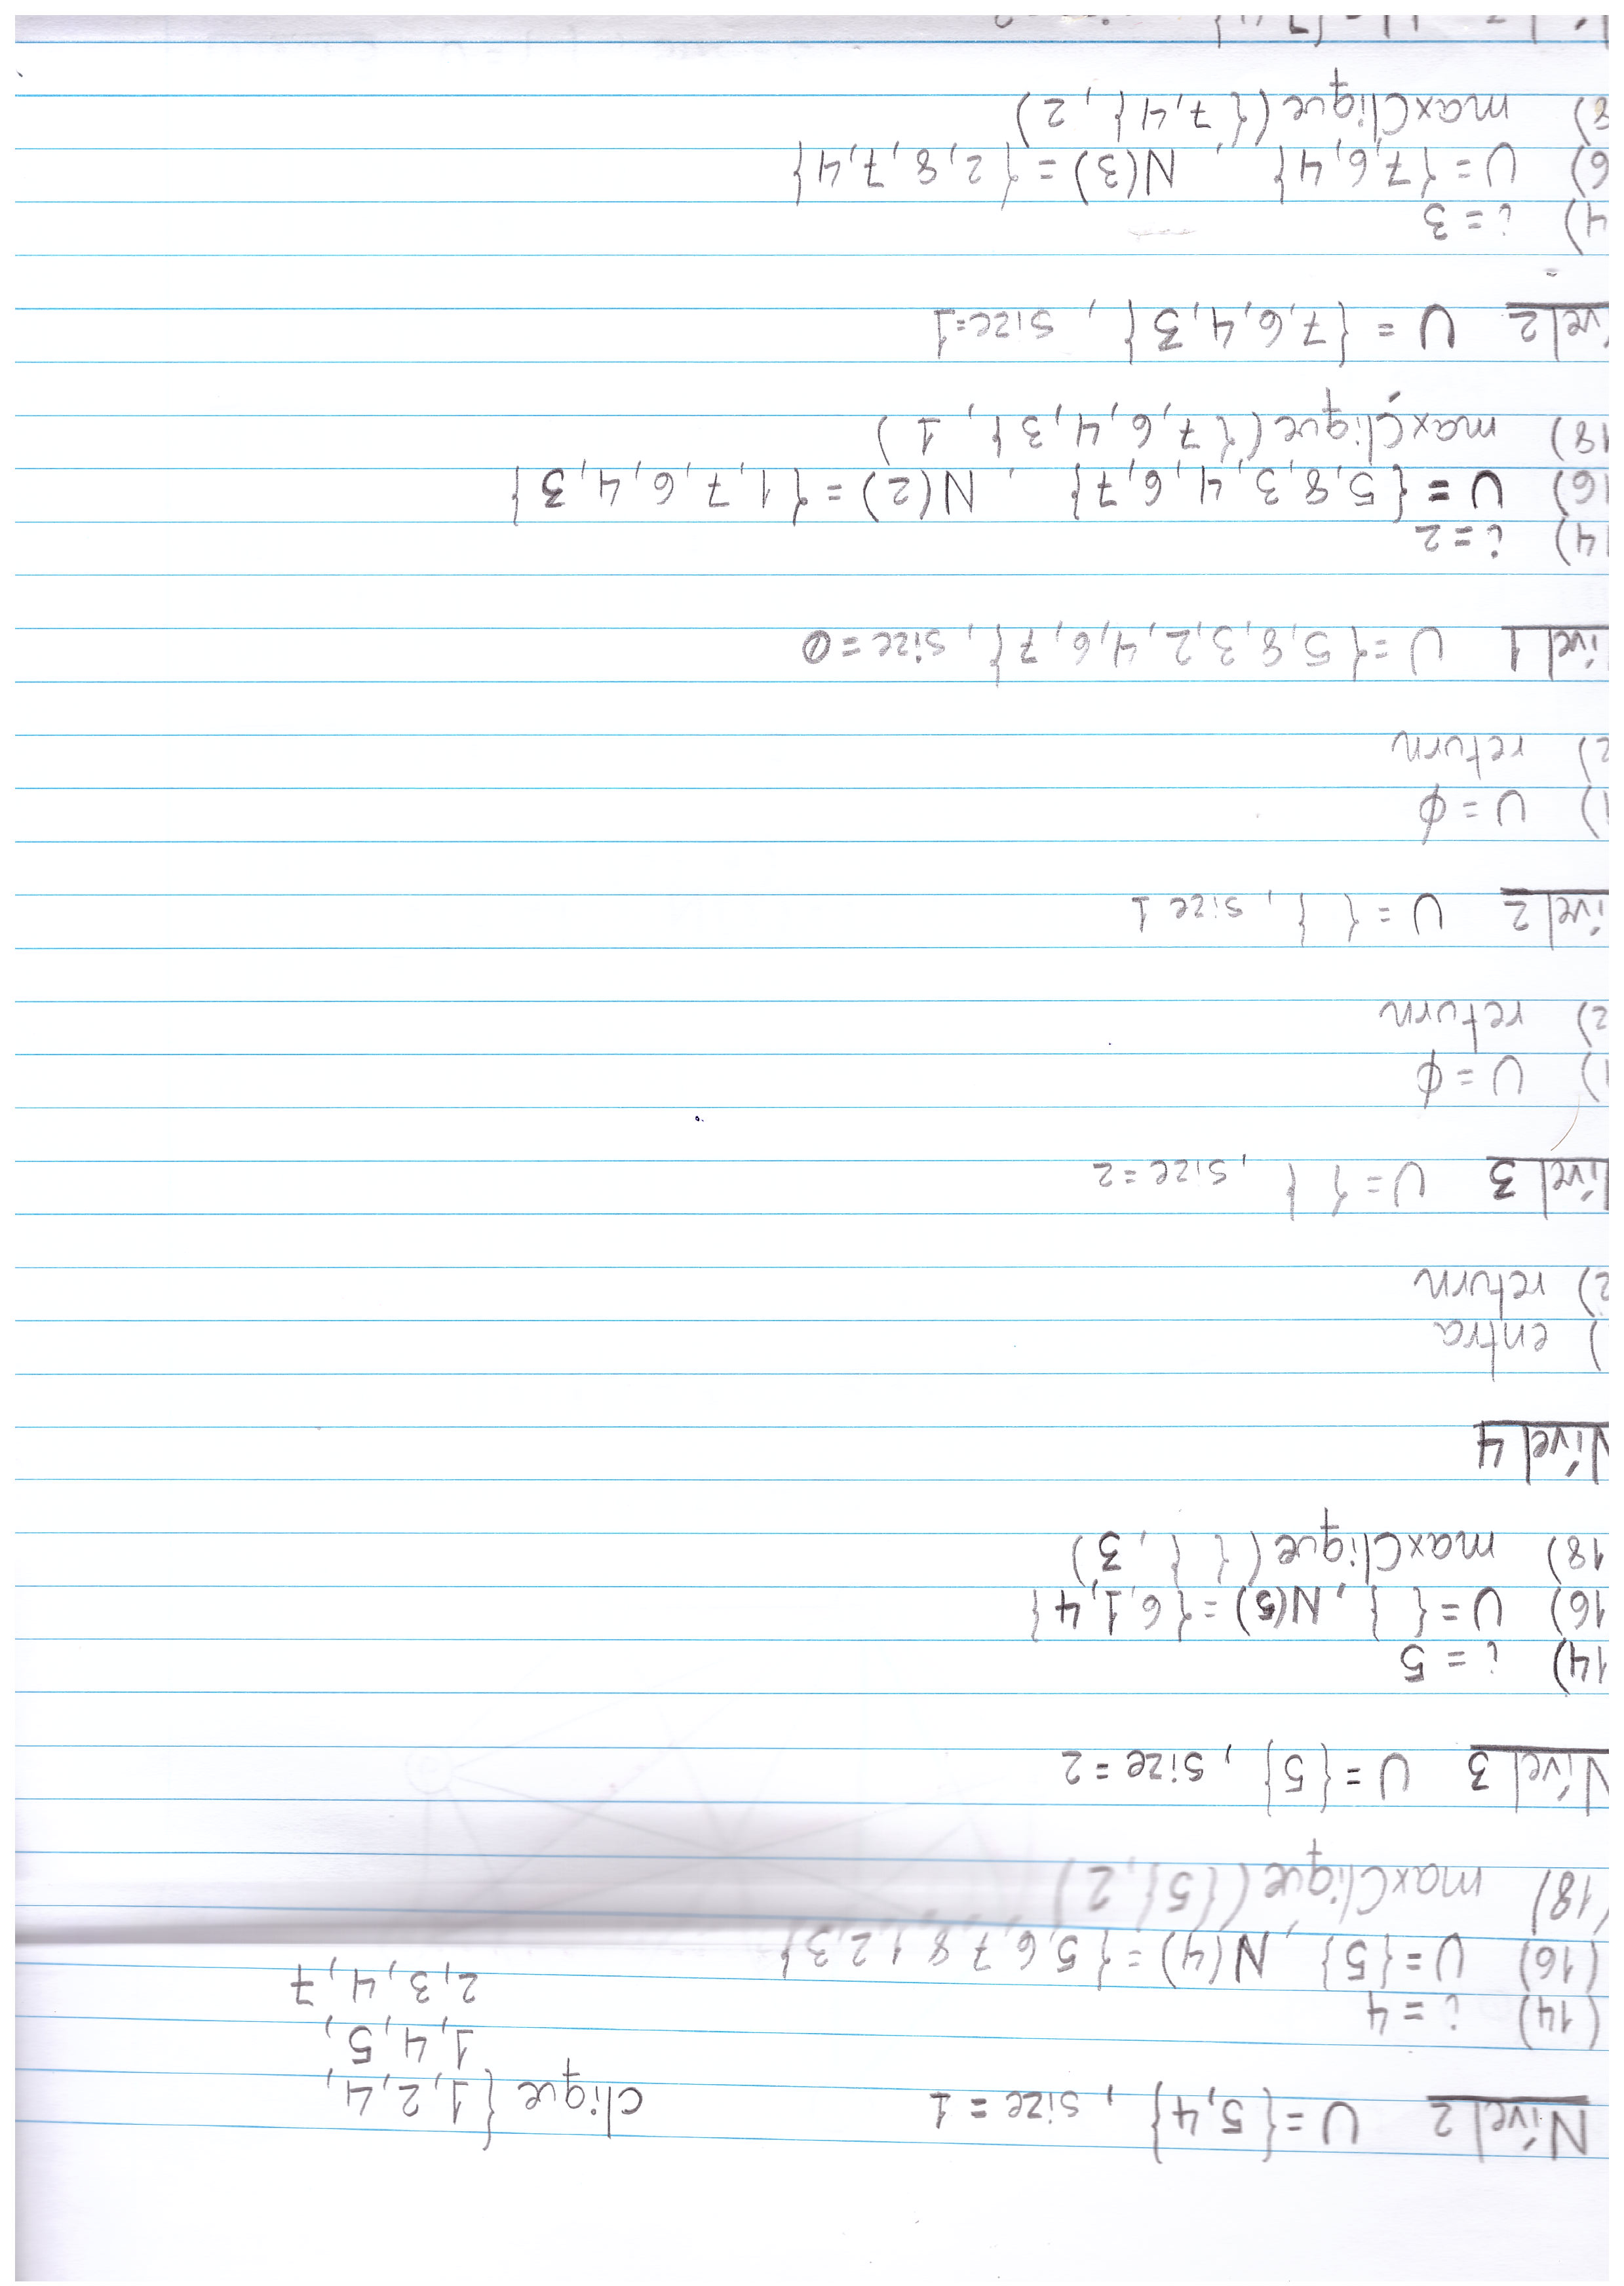 Nível 2 U = { 5, 4 } , size = 1
clique { 1, 2, 4,
1, 4, 5,
2, 3, 4, 7
(14) i = 4
(16) U = { 5 } , N(4) = { 5, 6, 7, 8, 1, 2, 3 }
(18) maxClique ( { 5 } , 2 )
Nível 3 U = { 5 } , size = 2
14) i = 5
16) U = { } , N(5) = { 6, 1, 4 }
18) maxClique ( { } , 3 )
Nível 4
) entra
2) return
ível 3 U = { } , size = 2
1) U = ϕ
2) return
ível 2 U = { } , size 1
1) U = ϕ
2) return
ível 1 U = { 5, 8, 3, 2, 4, 6, 7 } , size = 0
14) i = 2
16) U = { 5, 8, 3, 4, 6, 7 } , N(2) = { 1, 7, 6, 4, 3 }
18) maxClique ( { 7, 6, 4, 3 } , 1 )
ível 2 U = { 7, 6, 4, 3 } , size = 1
4) i = 3
6) U = { 7, 6, 4 } , N(3) = { 2, 8, 7, 4 }
8) maxClique ( { 7, 4 } , 2 )